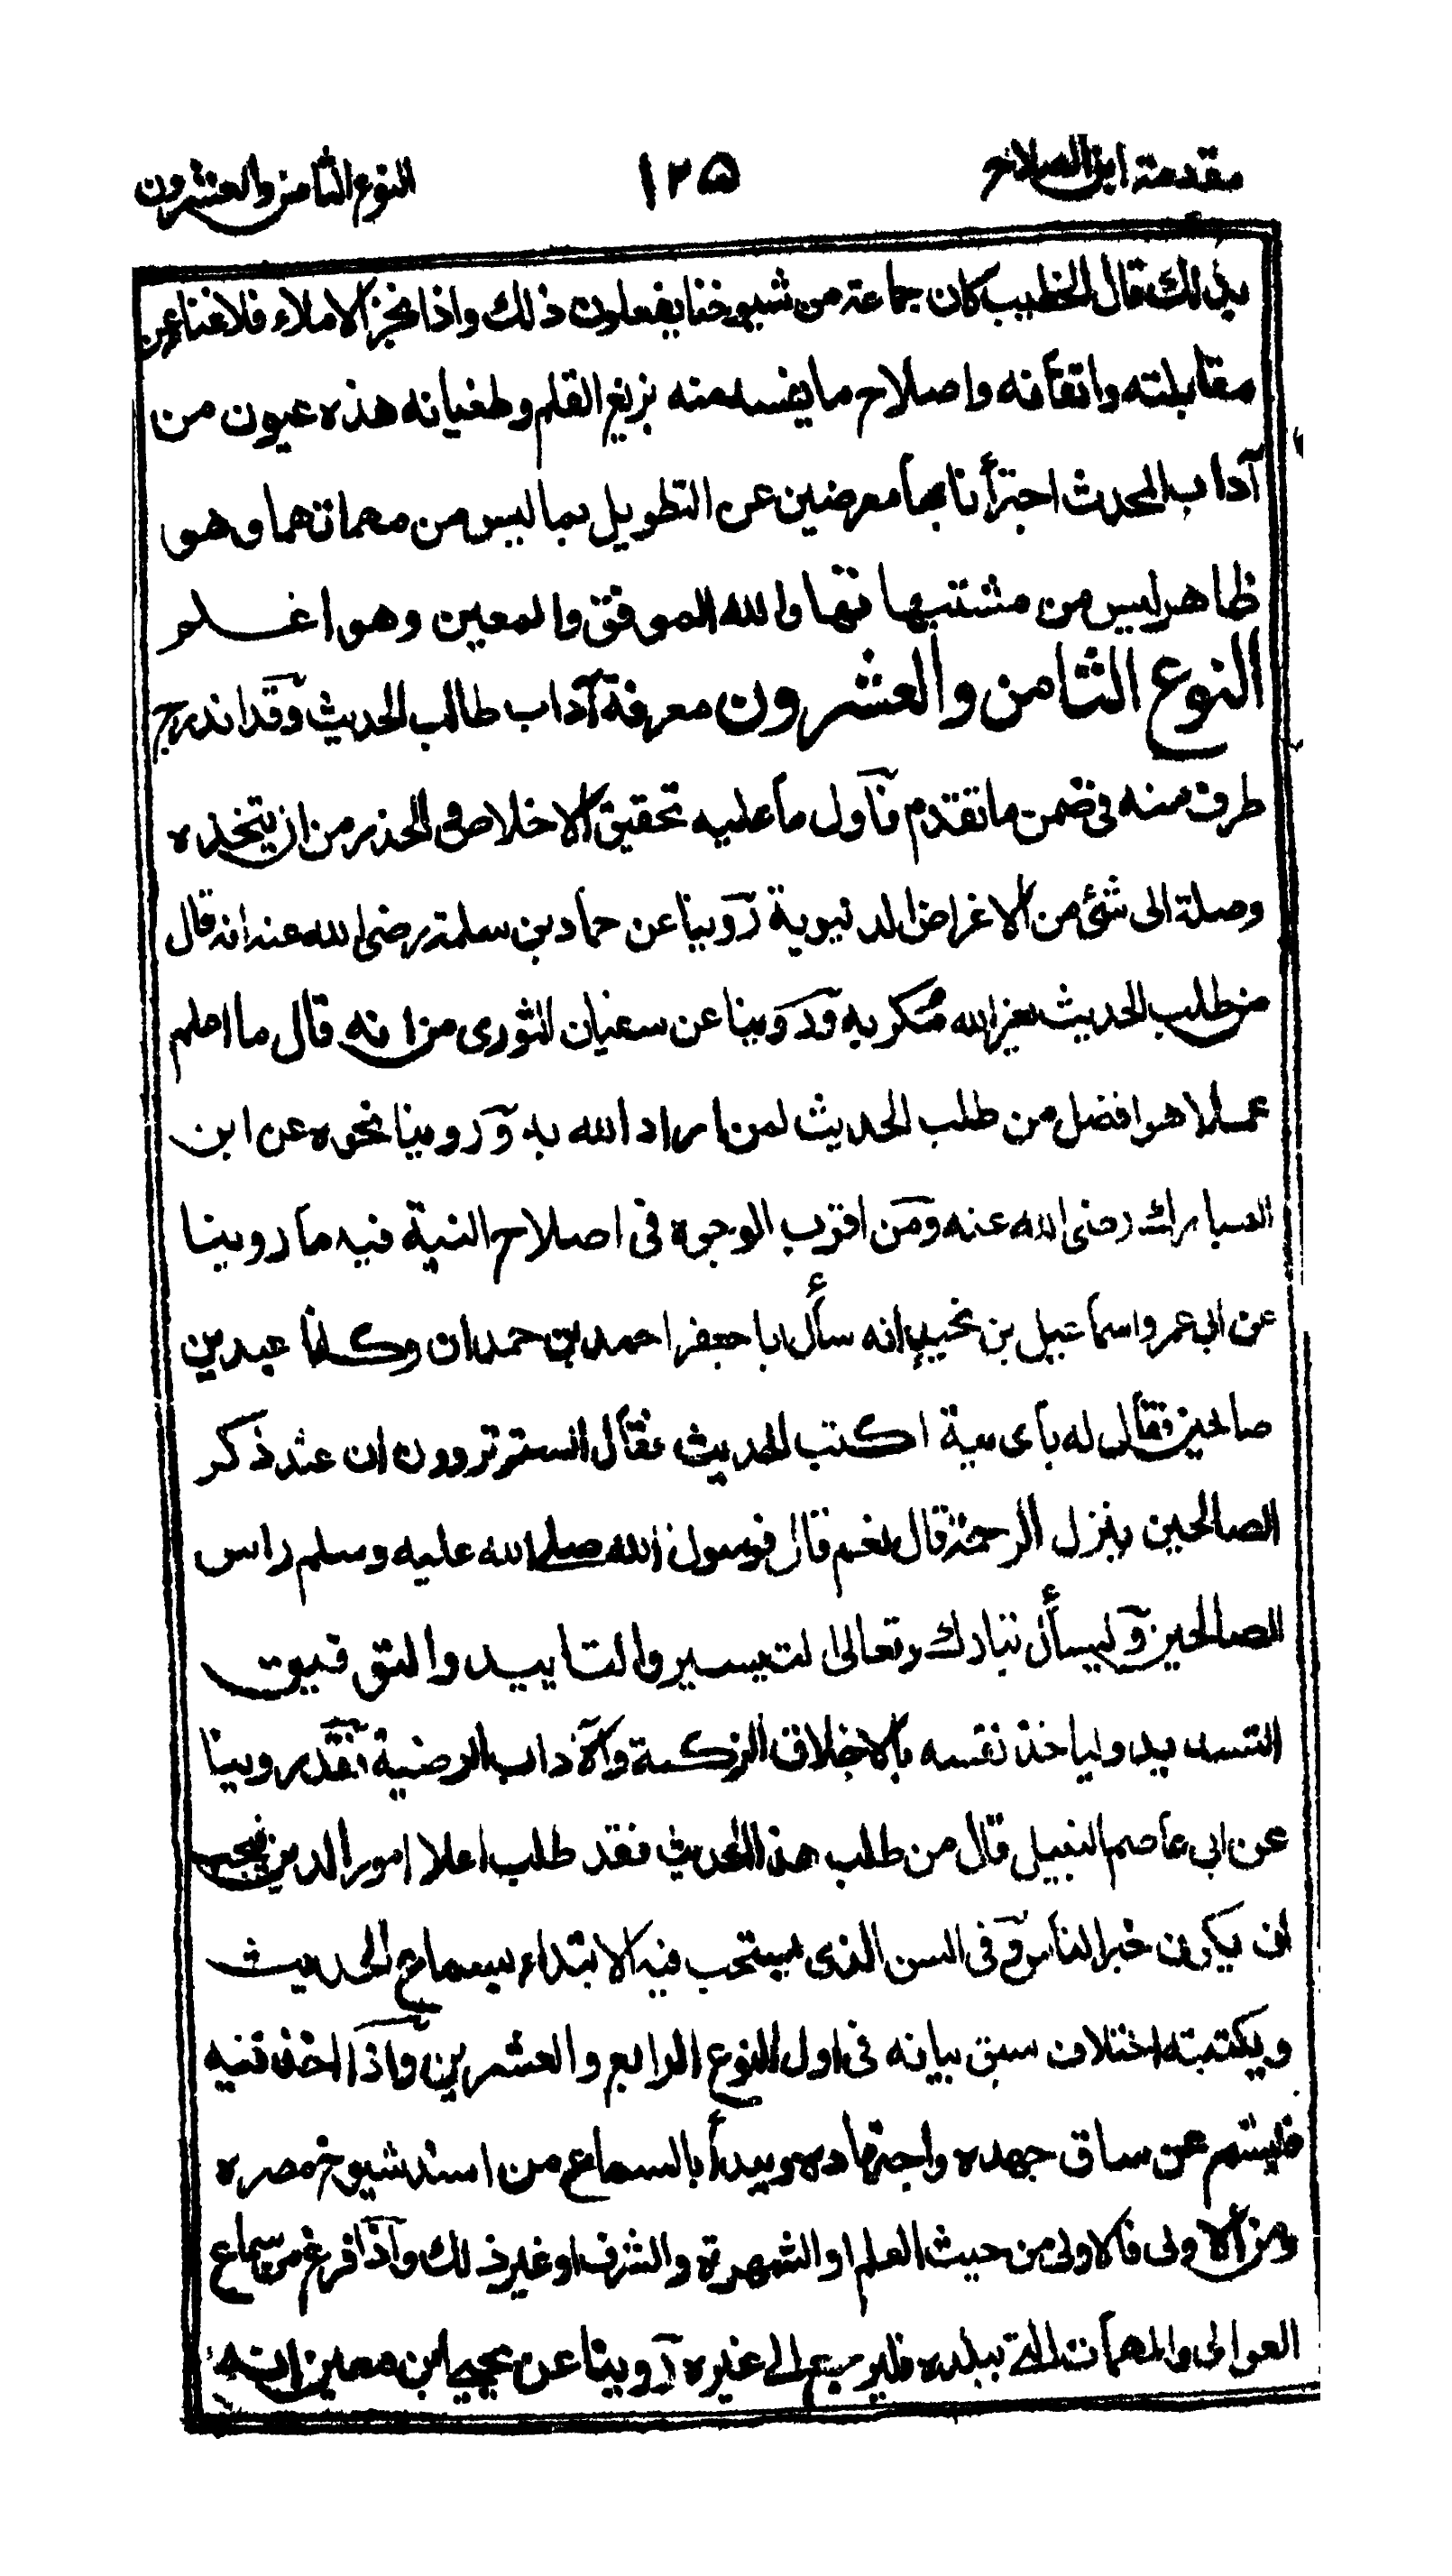 مقدمة ابن الصلاح ۱۲۵ النوع الثامن والعشرون
بذلك قال الخطيب كان جماعة من شيوخنا يفعلون ذلك واذا نجز الاملاء فلا غناء عن
مقابلته واتقانه واصلاح ما يفسد منه بزيغ القلم وطغيانه هذه عيون من
آداب المحدث اجتزأنا بها معرضين عن التطويل بما ليس من مهماتها وهو
ظاهر ليس من مشتبهاتها والله الموفق والمعين وهو اعلم
النوع الثامن والعشرون معرفة آداب طالب الحديث وقد اندرج
طرف منه في ضمن ما تقدم فاول ما عليه تحقيق الاخلاص والحذر من ان يتخذه
وصلة الى شئ من الاغراض الدنيوية روينا عن حماد بن سلمة رضي الله عنه انه قال
من طلب الحديث لغير الله مكر به وروينا عن سفيان الثوري من انه قال ما اعلم
عملا هو افضل من طلب الحديث لمن اراد الله به وروينا نحوه عن ابن
المبارك رضي الله عنه ومن اقرب الوجوه في اصلاح النية فيه ما روينا
عن ابي عمرو اسماعيل بن نجيد انه سأل ابا جعفر احمد بن حمدان وكانا عبدين
صالحين فقال له باى نية اكتب الحديث فقال الستم تروون ان عند ذكر
الصالحين ينزل الرحمة قال نعم قال فرسول الله صلى الله عليه وسلم راس
الصالحين وليسأل تبارك وتعالى التيسير والتاييد والتوفيق
التسديد ولياخذ نفسه بالاخلاق الزكية والآداب الرضية فقد روينا
عن ابى عاصم النبيل قال من طلب هذا الحديث فقد طلب اعلا امور الدين فيجب
ان يكون خير الناس وفى السن الذى يستحب فيه الابتداء بسماع الحديث
ويكتبته اختلاف سبق بيانه فى اول النوع الرابع والعشرين واذا اخذ فيه
فليشمر عن ساق جهده واجتهاده ويبدأ بالسماع من اسند شيوخ مصره
ومن الاولى فالاولى من حيث العلم او الشهرة والشرف او غير ذلك واذا فرغ من سماع
العوالى والمهمات التى ببلده فليرحل الى غيره روينا عن يحيى ابن معين انه